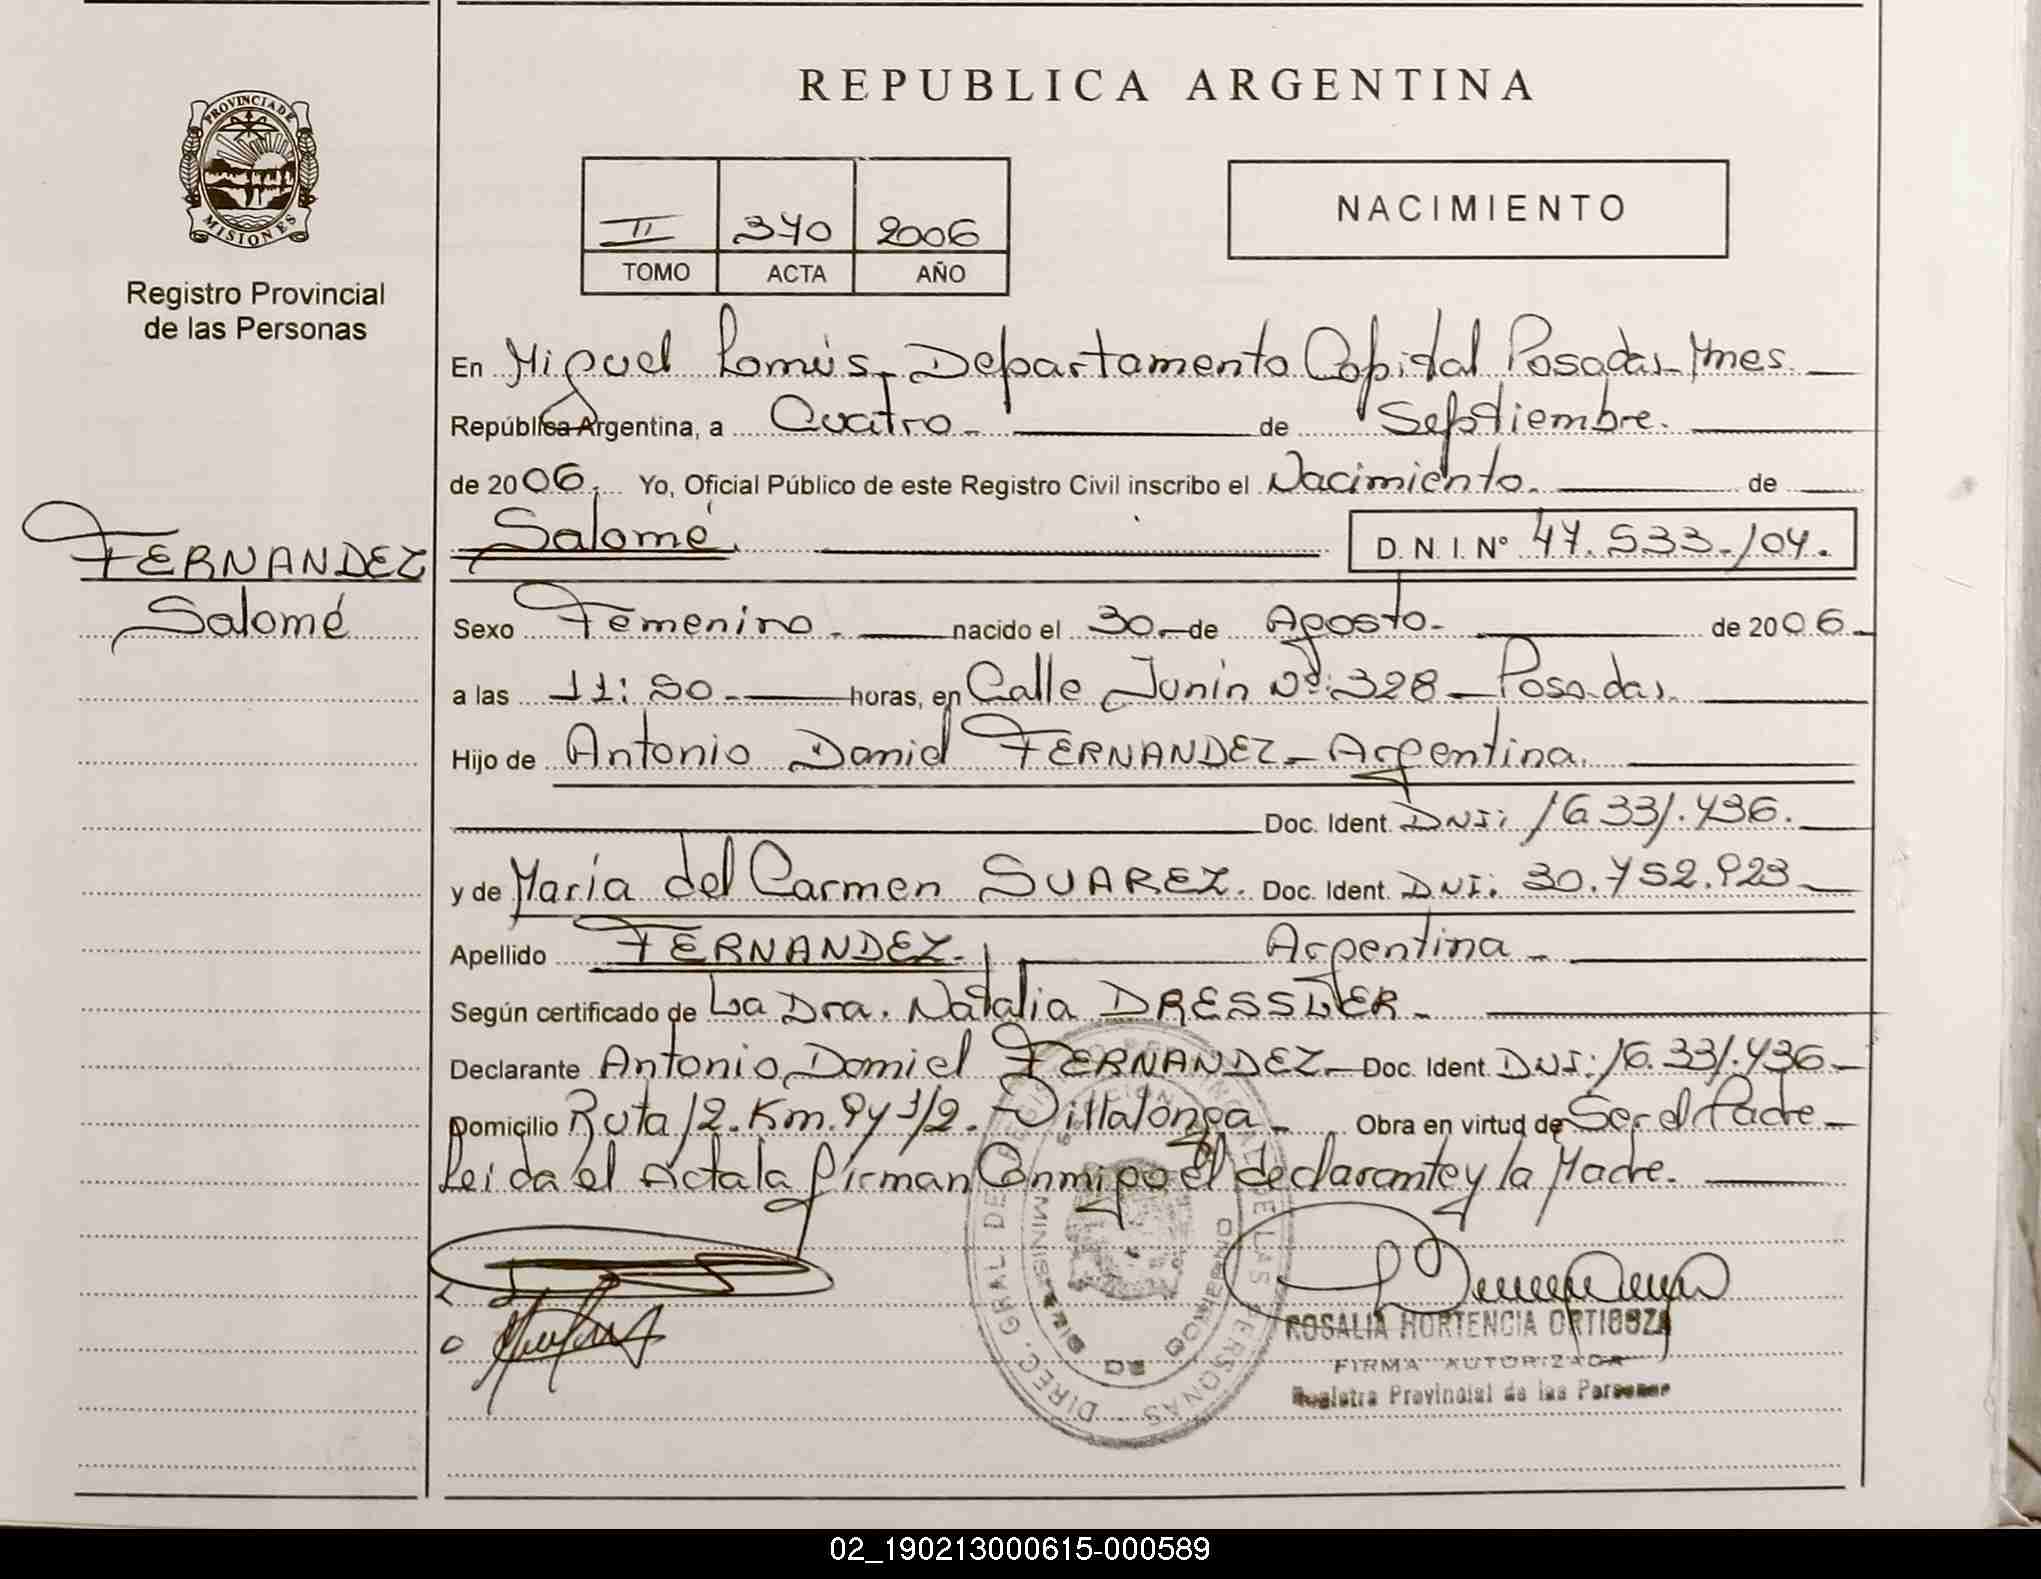 PROVINCIA DE
MISIONES
Registro Provincial
de las Personas
FERNANDEZ
Salomé
REPUBLICA ARGENTINA
II 370 2006
TOMO ACTA AÑO
NACIMIENTO
En Miguel Lanús, Departamento Capital Posadas Mnes.
República Argentina, a Cuatro de Septiembre.
de 2006. Yo, Oficial Público de este Registro Civil inscribo el Nacimiento. de
Salomé. D. N. I. Nº 47.533.104.
Sexo Femenino. nacido el 30 de Agosto de 2006
a las 11:50 horas, en Calle Junín Nº: 328 Posadas.
Hijo de Antonio Daniel FERNANDEZ Argentina.
Doc. Ident. DNI: 16.331.736.
y de María del Carmen SUAREZ. Doc. Ident. DNI: 30.752.923
Apellido FERNANDEZ. Argentina
Según certificado de La Dra. Natalia DRESSLER
Declarante Antonio Daniel FERNANDEZ Doc. Ident. DNI: 16.331.736
Domicilio Ruta 12. Km. 9 y 1/2. Villalonga Obra en virtud de Ser el Padre
Leida el Acta la firman Conmigo el declarante y la Madre.
DIREC. GRAL DE REGISTRO PROVINCIAL DE LAS PERSONAS
ROSALIA HORTENCIA ORTIGOZA
FIRMA AUTORIZADA
Registro Provincial de las Personas
02_190213000615-000589